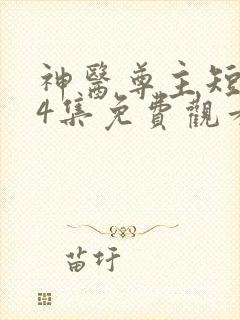 神醫尊主短
4集免費觀看
苗圩